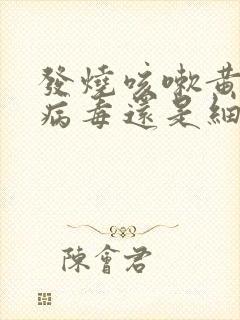 發燒咳嗽黃
病毒還是細
陳會君